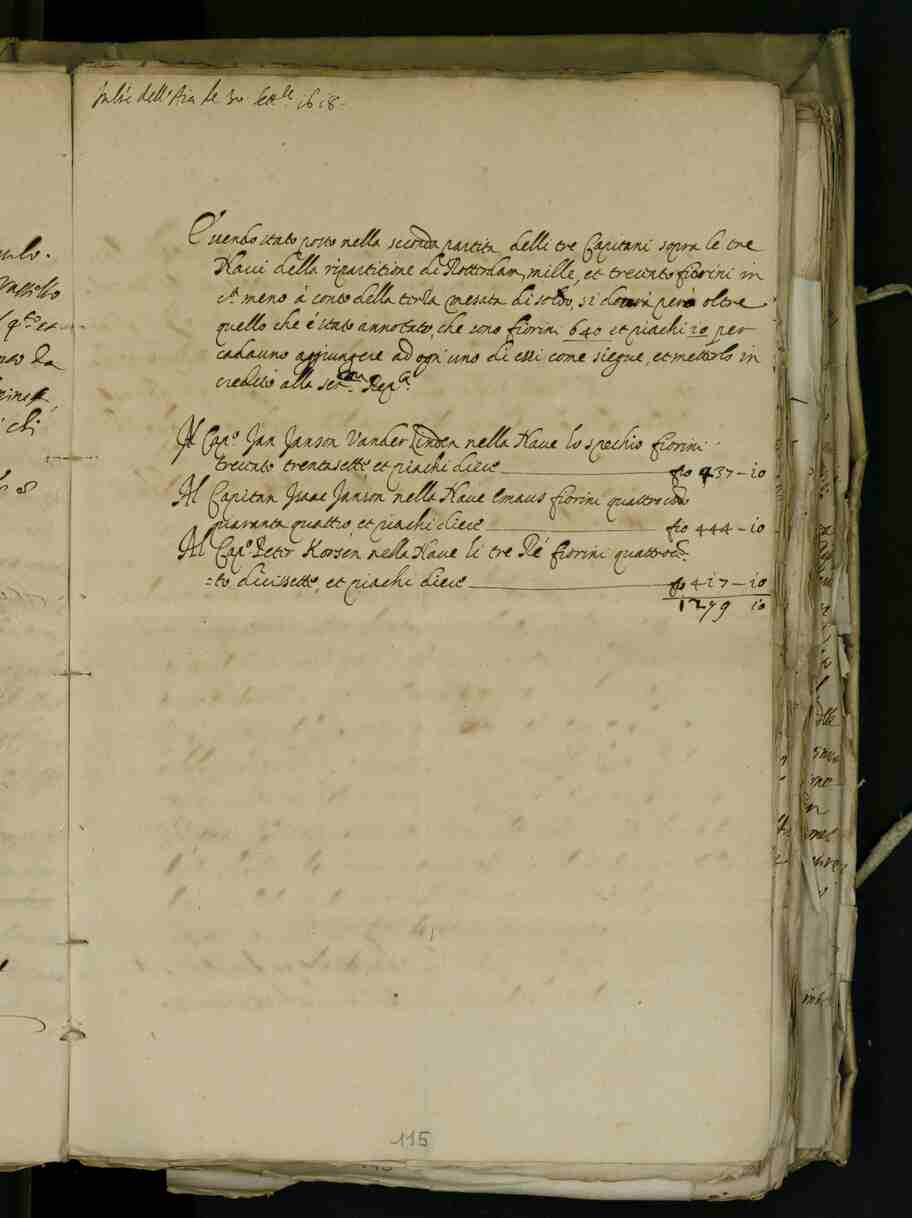 dell'Aia le 30 1618.
Essendo stato posto nella seconda partita delli tre Capitani sopra le tre
Naui della ripartitione di Rotterdam, mille, et trecento fiorini in
c.ª meno à conto della terza mesata di soldo, si dourà però oltre
quello che é stato annotato, che sono fiorini 640 et piachi 10 per
cadauno aggiungere ad ogni uno di essi come siegue, et metterlo in
credito alla Ser.ma Rep.ca
Al Cap.o Jan Janson Vander Linden nella Naue lo spechio fiorini
trecento trentasette et piachi diece fio 437-10
Al Capitan Isaac Janson nella Naue Emaus fiorini quattrocento
quaranta quattro, et piachi diece fio 444-10
Al Cap.o Peter Korsen nella Naue li tre Ré fiorini quattrocē
=to dicissette, et piachi diece fio 417-10
1299 10
115